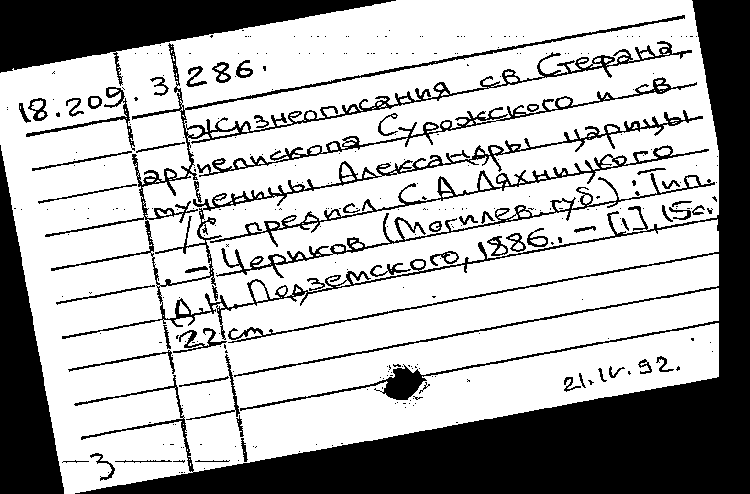 18.209.3.286.
Жизнеописания св. Стефана,
архиепископа Сурожского и св.
мученицы Александры царицы
/С предисл. С.А. Ляхницкого
. – Чериков (Могилев. губ.) : Тип.
Д.Н. Подземского, 1886. – [1], 15с.;
22 см.
21.IV.92.
3